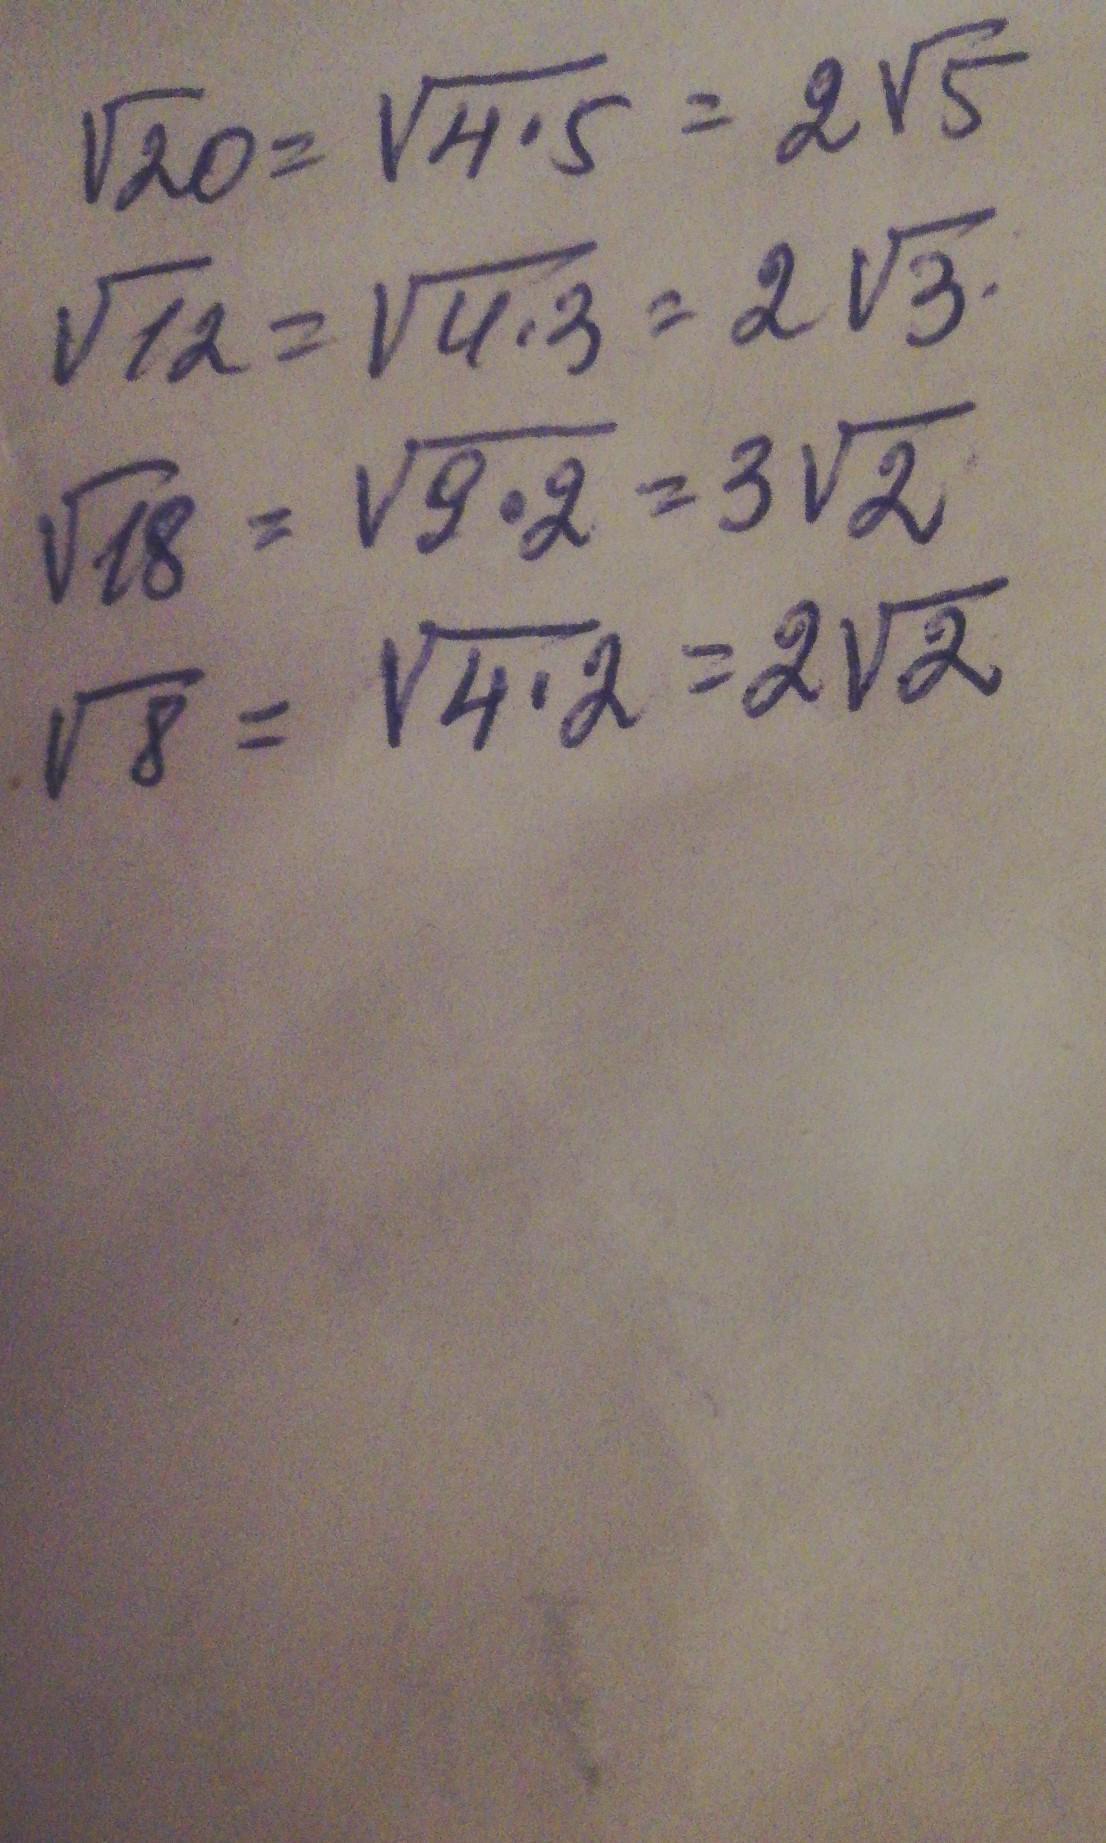 √20 = √4·5 = 2√5
√12 = √4·3 = 2√3.
√18 = √9·2 = 3√2
√8 = √4·2 = 2√2